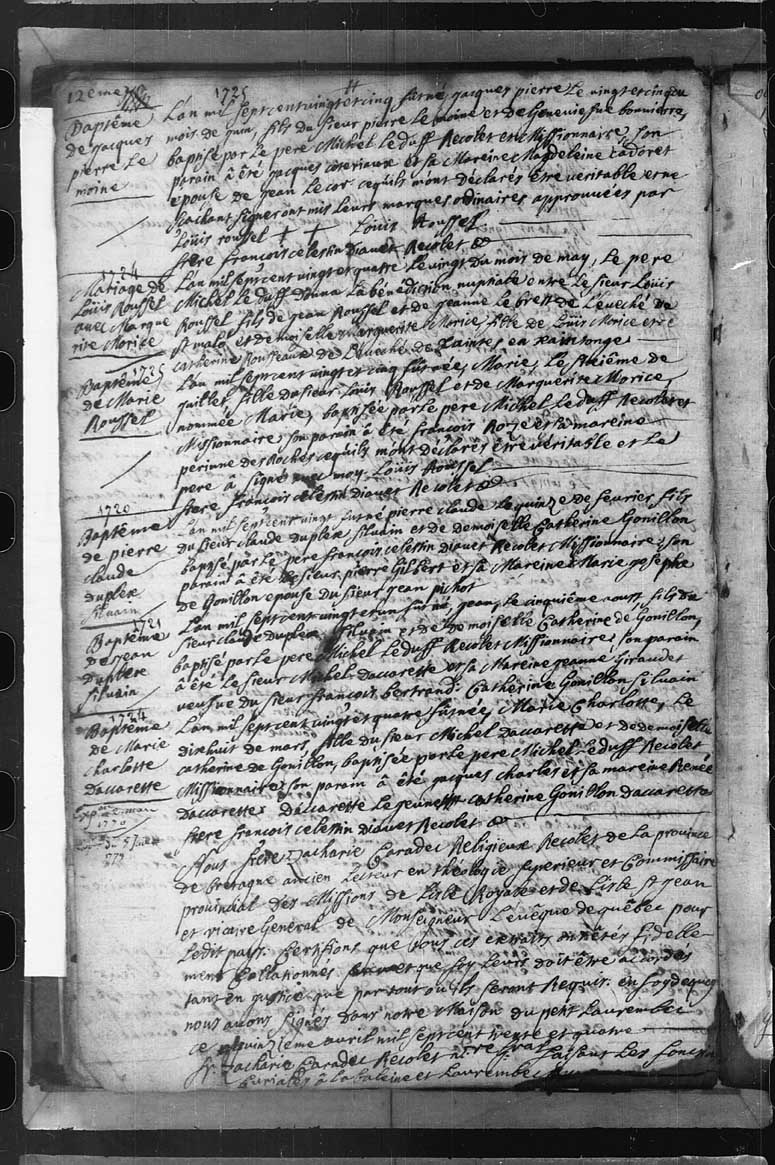 12eme
1725
Baptême
de jacques
pierre Le
moine
L'an mil sept cent vingt et cinq fut né jacques pierre Le vingt et cinq du
mois de juin, fils du sieur pierre Le moine et de Genevie
baptisé par Le pere Michel Le duff Recolet et Missionnaire, son
parain â été jacques et sa Mareine Magdeleine Cadoret
epouse de jean Le cor cequils m'ont déclarés être veritable et ne
sachant signer ont mis leurs marques ordinaires approuvées par
Louis roussel + + Louis Roussel
frere françois celestin diauet Recolet
1724
Mariage de
Louis Roussel
avec Marque
rite Morice
L'an mil sept cent vingt et quatre le vingt du mois de may, Le pere
Michel Le duff donna La bénédiction nuptiale entre Le sieur Loüis
Roussel fils de jean Roussel et de jeanne Le de L'eveché de
st malo, et demoiselle Marguerite Morice, fille de Loüis Morice et de
catherine Rousseaux de L'eveché de Xaintes en Xaintonge
1725
Baptême
de Marie
Roussel
L'an mil sept cent vingt et cinq fut née, Marie, Le sixiême de
juillet fille du sieur Louis Roussel et de Marguerite Morice,
nommée Marie, baptisée par Le pere Michel Le duff Recolet et
Missionnaire, son parain â été françois et sa mareine
perinne des Roches cequils m'ont déclarés être veritable et Le
pere â signé avec moy Loüis Roussel
frere françois celestin diauet Recolet
1720
Baptême
de pierre
claude
duplex
silvain
L'an mil sept cent vingt fut né pierre claude le quinze de feurier, fils
du sieur claude duplex silvain et de demoiselle Catherine Gonillon
baptisé par Le pere françois celestin diauet Recolet Missionnaire, son
parain â été Le sieur pierre Gilbert et sa Mareine Marie josephe
de Gonillon epouse du sieur jean pichot
1721
Baptême
de jean
Duplex
silvain
L'an mil sept cent vingt et un fut né, jean, le cinquiême aoust, fils du
sieur claude duplex silvain et de demoiselle Catherine de Gonillon,
baptisé par Le pere Michel Le duff Recolet Missionnaire, son parain
â été Le sieur Michel daccarette et sa Mareine jeanne Giraudet
veufue du sieur françois bertrand. Catherine Gonillon silvain
1724
Baptême
de Marie
charlotte
Daccarette
L'an mil sept cent vingt et quatre fut née, Marie Charlotte, Le
dixhuit de mars, fille du sieur Michel daccarette et de demoiselle
catherine de Gonillon, baptisée par Le pere Michel Le duff Recolet
Missionnaire, son parain â été jacques charles et sa mareine Renée
Daccarette, daccarette Le jeune catherine Gonillon daccarette
frere françois celestin diauet Recolet
Nous frere Zacharie Caradec Religieux Recolet de La province
de bretagne ancien Lecteur en théologie superieur et Commissaire
provincial des Missions de L'isle Royale et de L'isle st jean
et vicaire General de Monseigneur L'evêque de québec pour
Ledit pays. Certifions que tous ces extraits ont étés fidelle-
ment Collationnés et que foy Leurs doit être
tant en justice que par tout où ils seront Requis. en foy de quoy
nous avons signés dans notre Maison du petit Laurembec
ce quinzieme avril mil sept cent trente et quatre
fr. Zacharie Caradec Recolet faisant Les fonctions
Curiales â La baleine et Laurembec